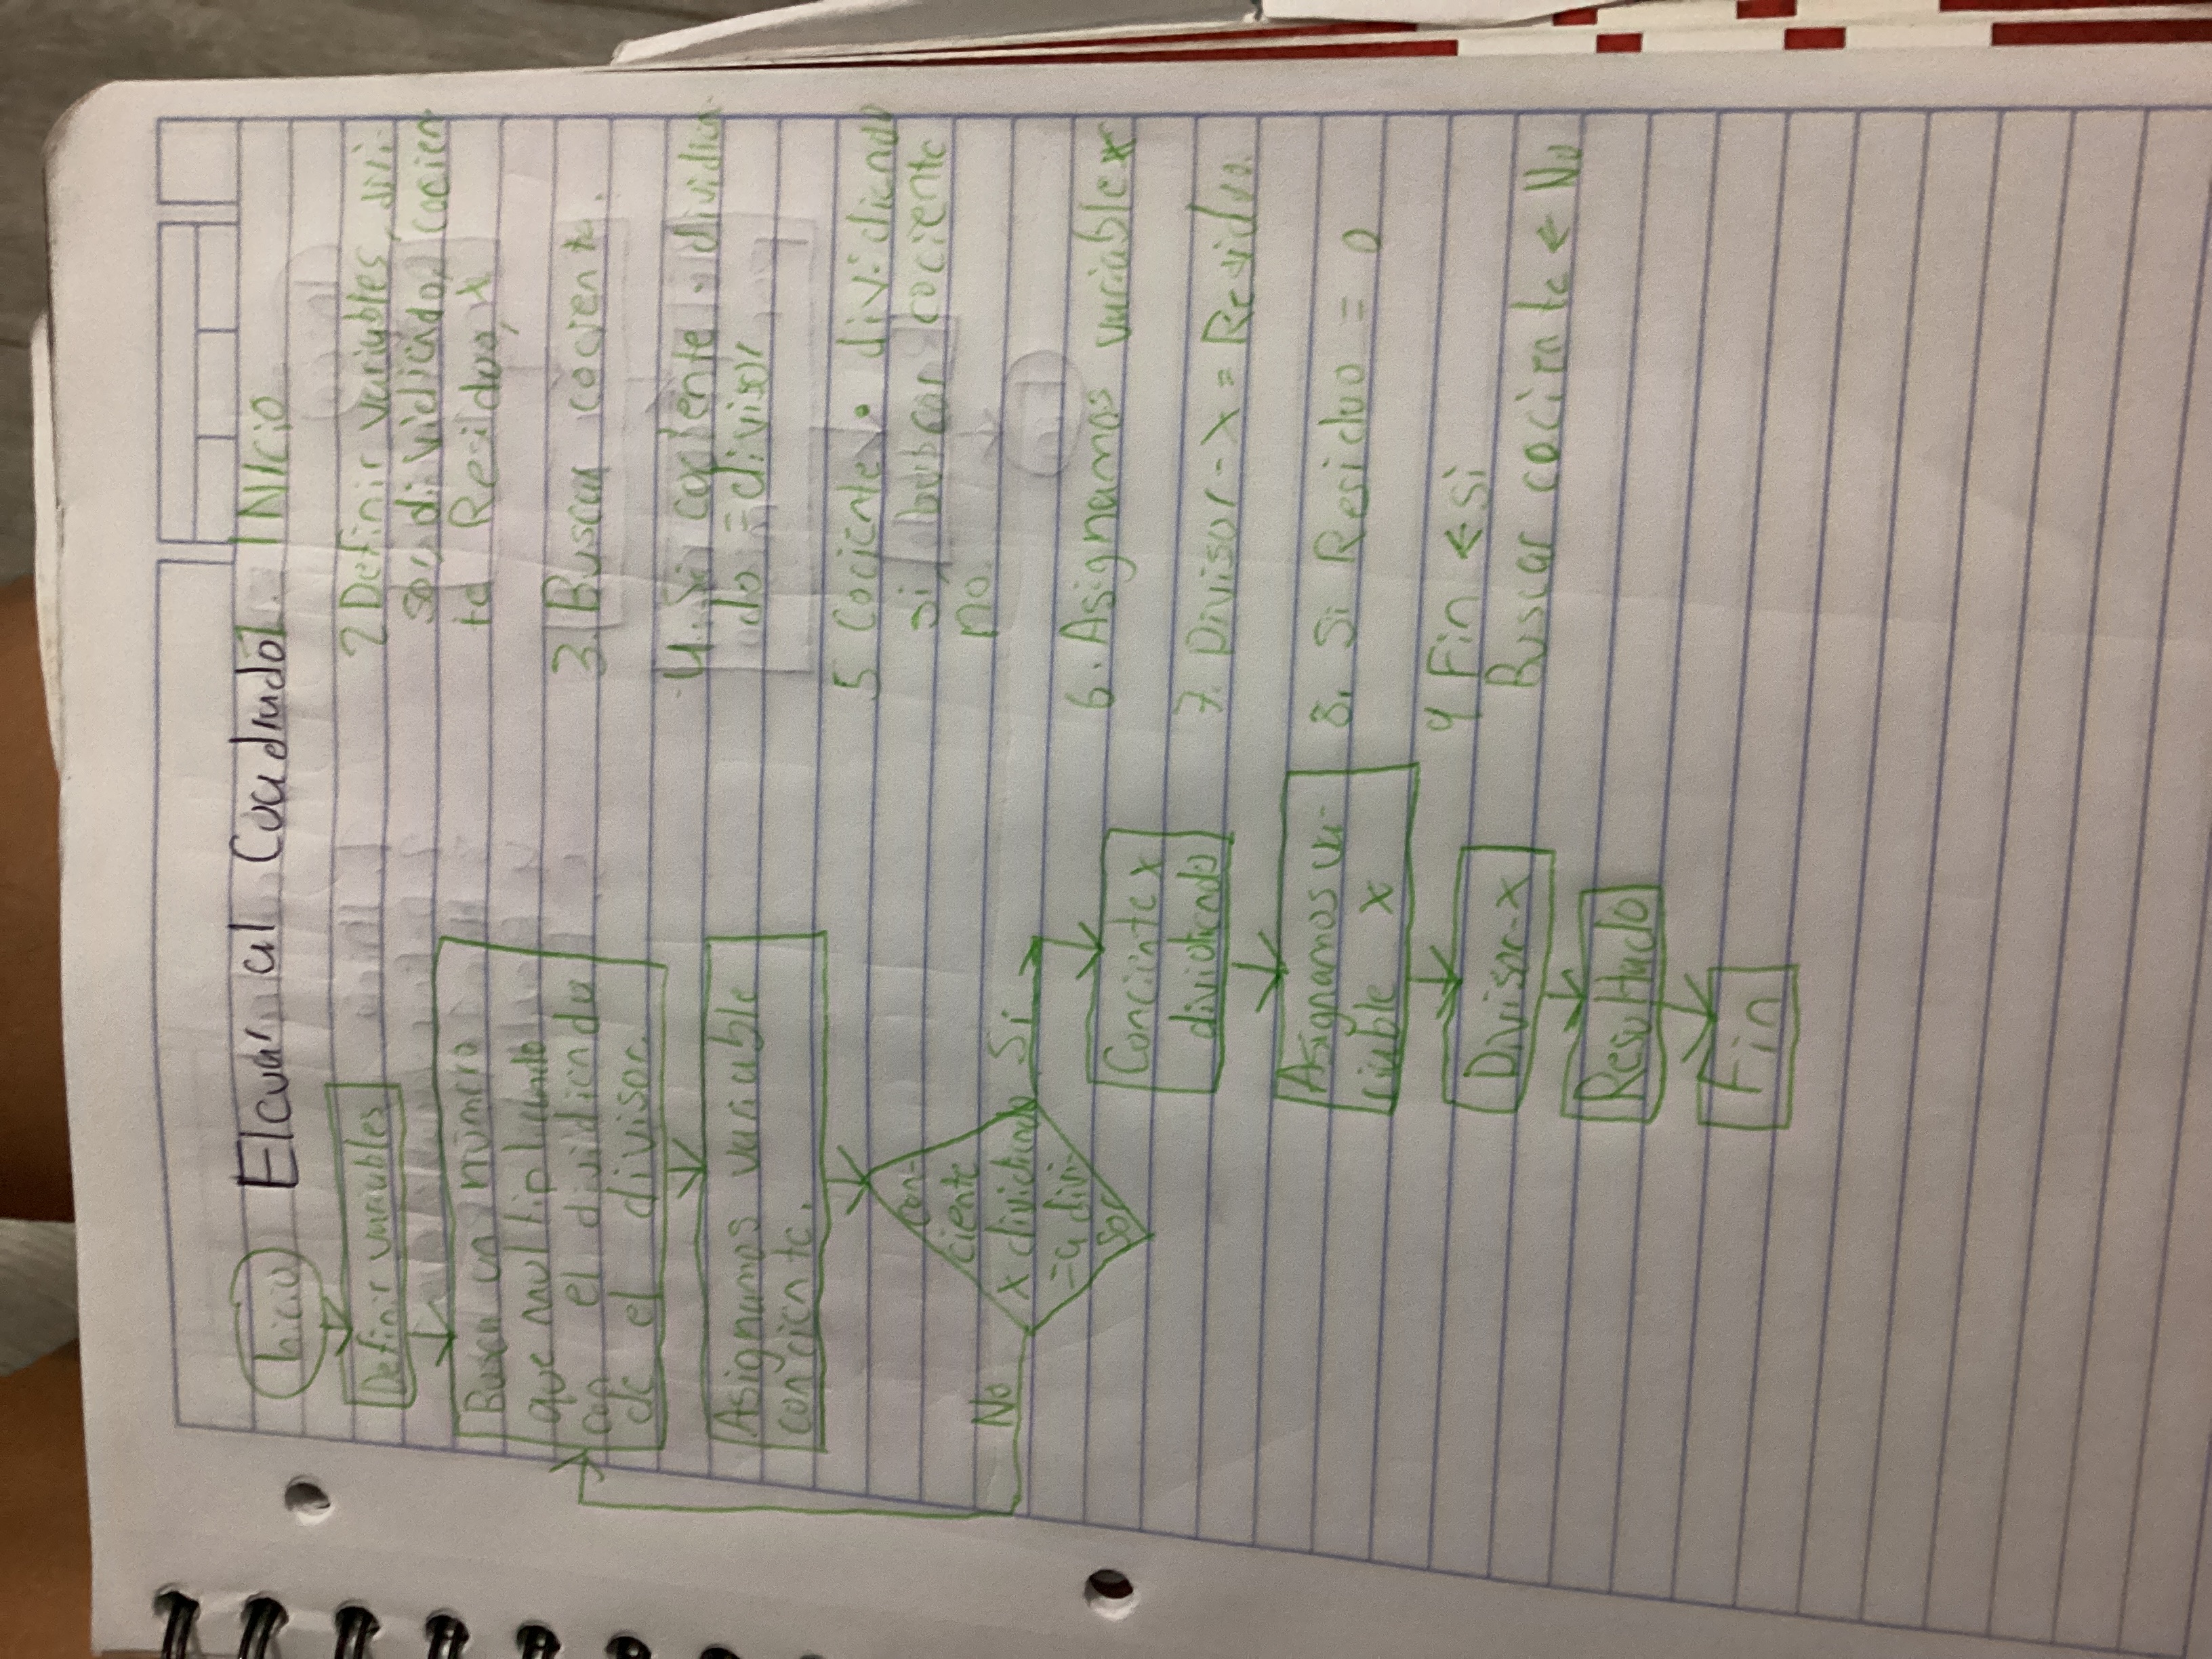 Elevar al Cuadrado
Inicio
Definir variables
Busca un número
que multiplicado
con el dividendo
de el divisor.
Asignamos variable
conciente.
con-
ciente
x dividiendo
= a divi-
sor
No
Si
Conciente x
dividiendo
Asignamos va-
riable x
Divisor-x
Resultado
Fin
1 Nicio
2 Definir variables, divi
sor, dividiendo, cocien
te Residuo, x
3. Buscar cociente.
4. Si cociente . dividien
do = divisor
5 Cociente . dividiendo
si, buscar cociente
no.
6. Asignamos variable x
7. Divisor - x = Residuo.
8. Si Residuo = 0
9 Fin ← si
Buscar cociente ← No